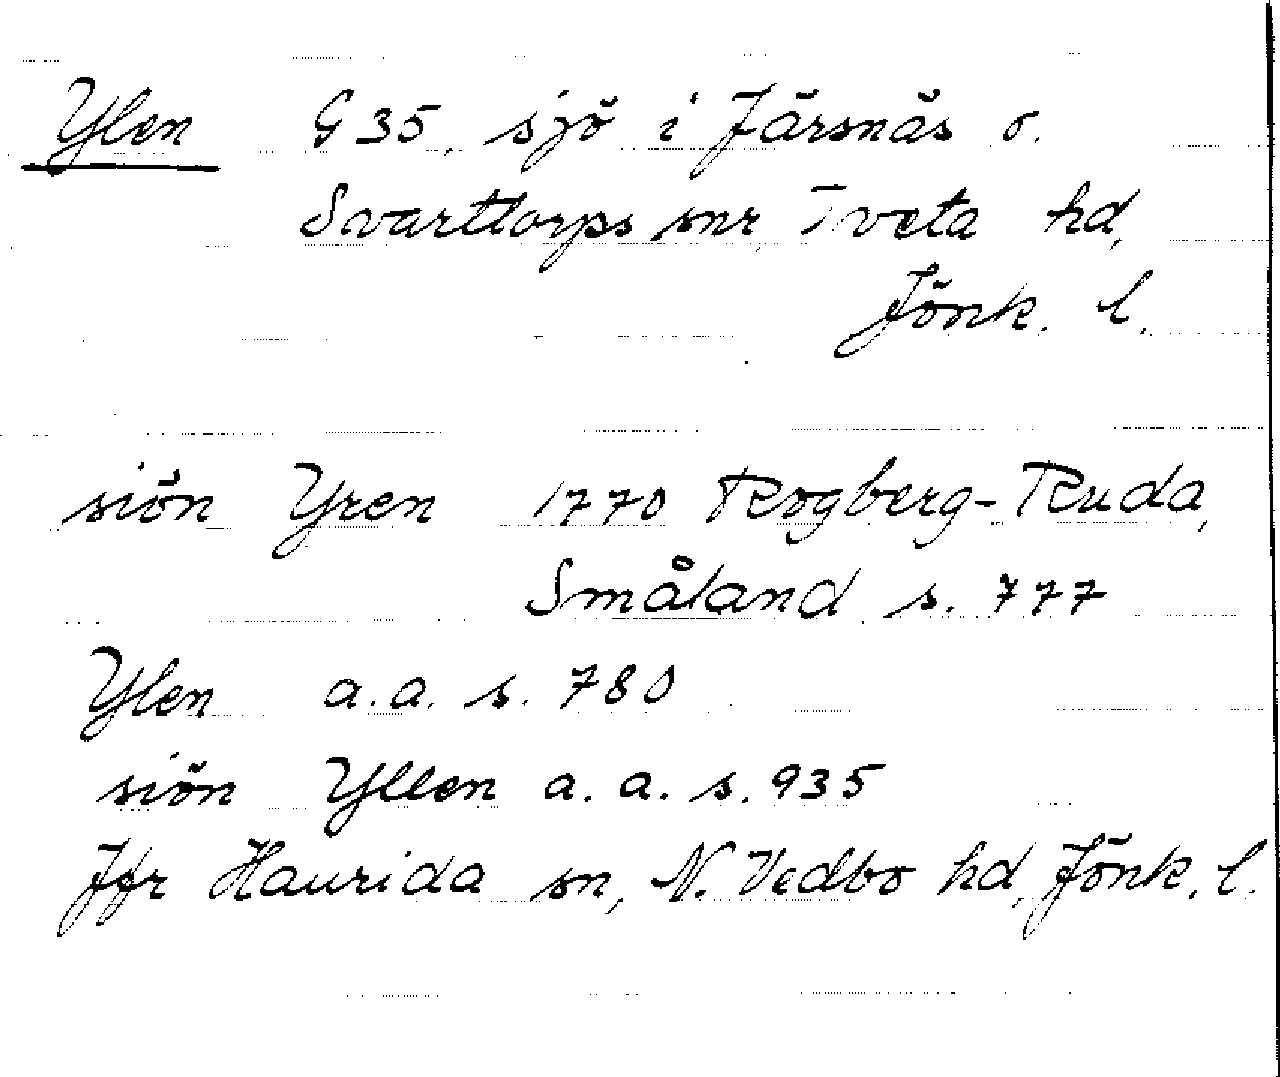 Ylen G 35, sjö i Järsnäs o.
Svarttorps snr, Tveta hd,
Jönk. l.
siön Yren 1770 Rogberg-Ruda,
Småland s. 777
Ylen a.a. s. 780
siön Yllen a.a. s. 935
Jfr Haurida sn, N. Vedbo hd, Jönk. l.